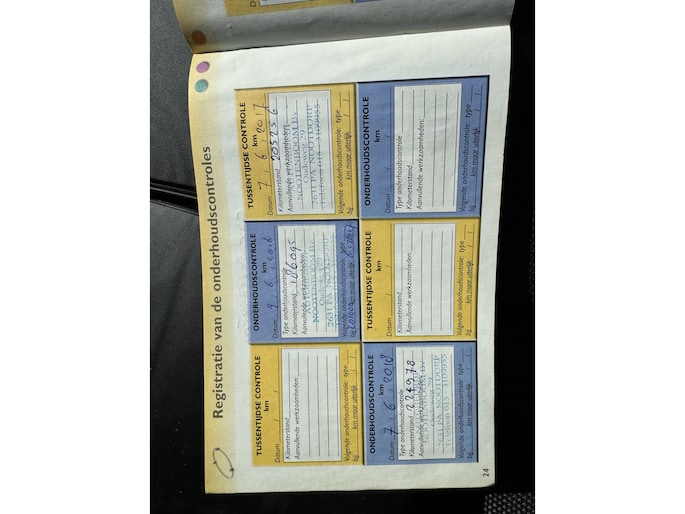 Registratie van de onderhoudscontroles
TUSSENTIJDSE CONTROLE
km
Datum / /
Kilometerstand
Aanvullende werkzaamheden:
Volgende onderhoudcontrole: type
bij km maar uiterlijk / /
ONDERHOUDSCONTROLE
km
Datum 9 / 6 / 2016
Type onderhoudcontrole
Kilometerstand 186095
Aanvullende werkzaamheden:
NOOTENBOOM BV
Oudeweg 29
2631 PA NOOTDORP
Volgende onderhoudcontrole: type
bij km maar uiterlijk
TUSSENTIJDSE CONTROLE
km
Datum 7 / 6 / 2017
Kilometerstand 205256
Aanvullende werkzaamheden:
NOOTENBOOM BV
Oudeweg 29
2631 PA NOOTDORP
Telefoon 015 - 3109955
Volgende onderhoudcontrole: type
bij km maar uiterlijk / /
ONDERHOUDSCONTROLE
km
Datum 7 / 6 / 2018
Type onderhoudcontrole
Kilometerstand 224978
Aanvullende werkzaamheden:
NOOTENBOOM BV
Oudeweg 29
2631 PA NOOTDORP
Telefoon 015 - 3109955
Volgende onderhoudcontrole: type
bij km maar uiterlijk / /
TUSSENTIJDSE CONTROLE
km
Datum / /
Kilometerstand
Aanvullende werkzaamheden:
Volgende onderhoudcontrole: type
bij km maar uiterlijk / /
ONDERHOUDSCONTROLE
km
Datum / /
Type onderhoudcontrole
Kilometerstand
Aanvullende werkzaamheden:
Volgende onderhoudcontrole: type
bij km maar uiterlijk / /
24